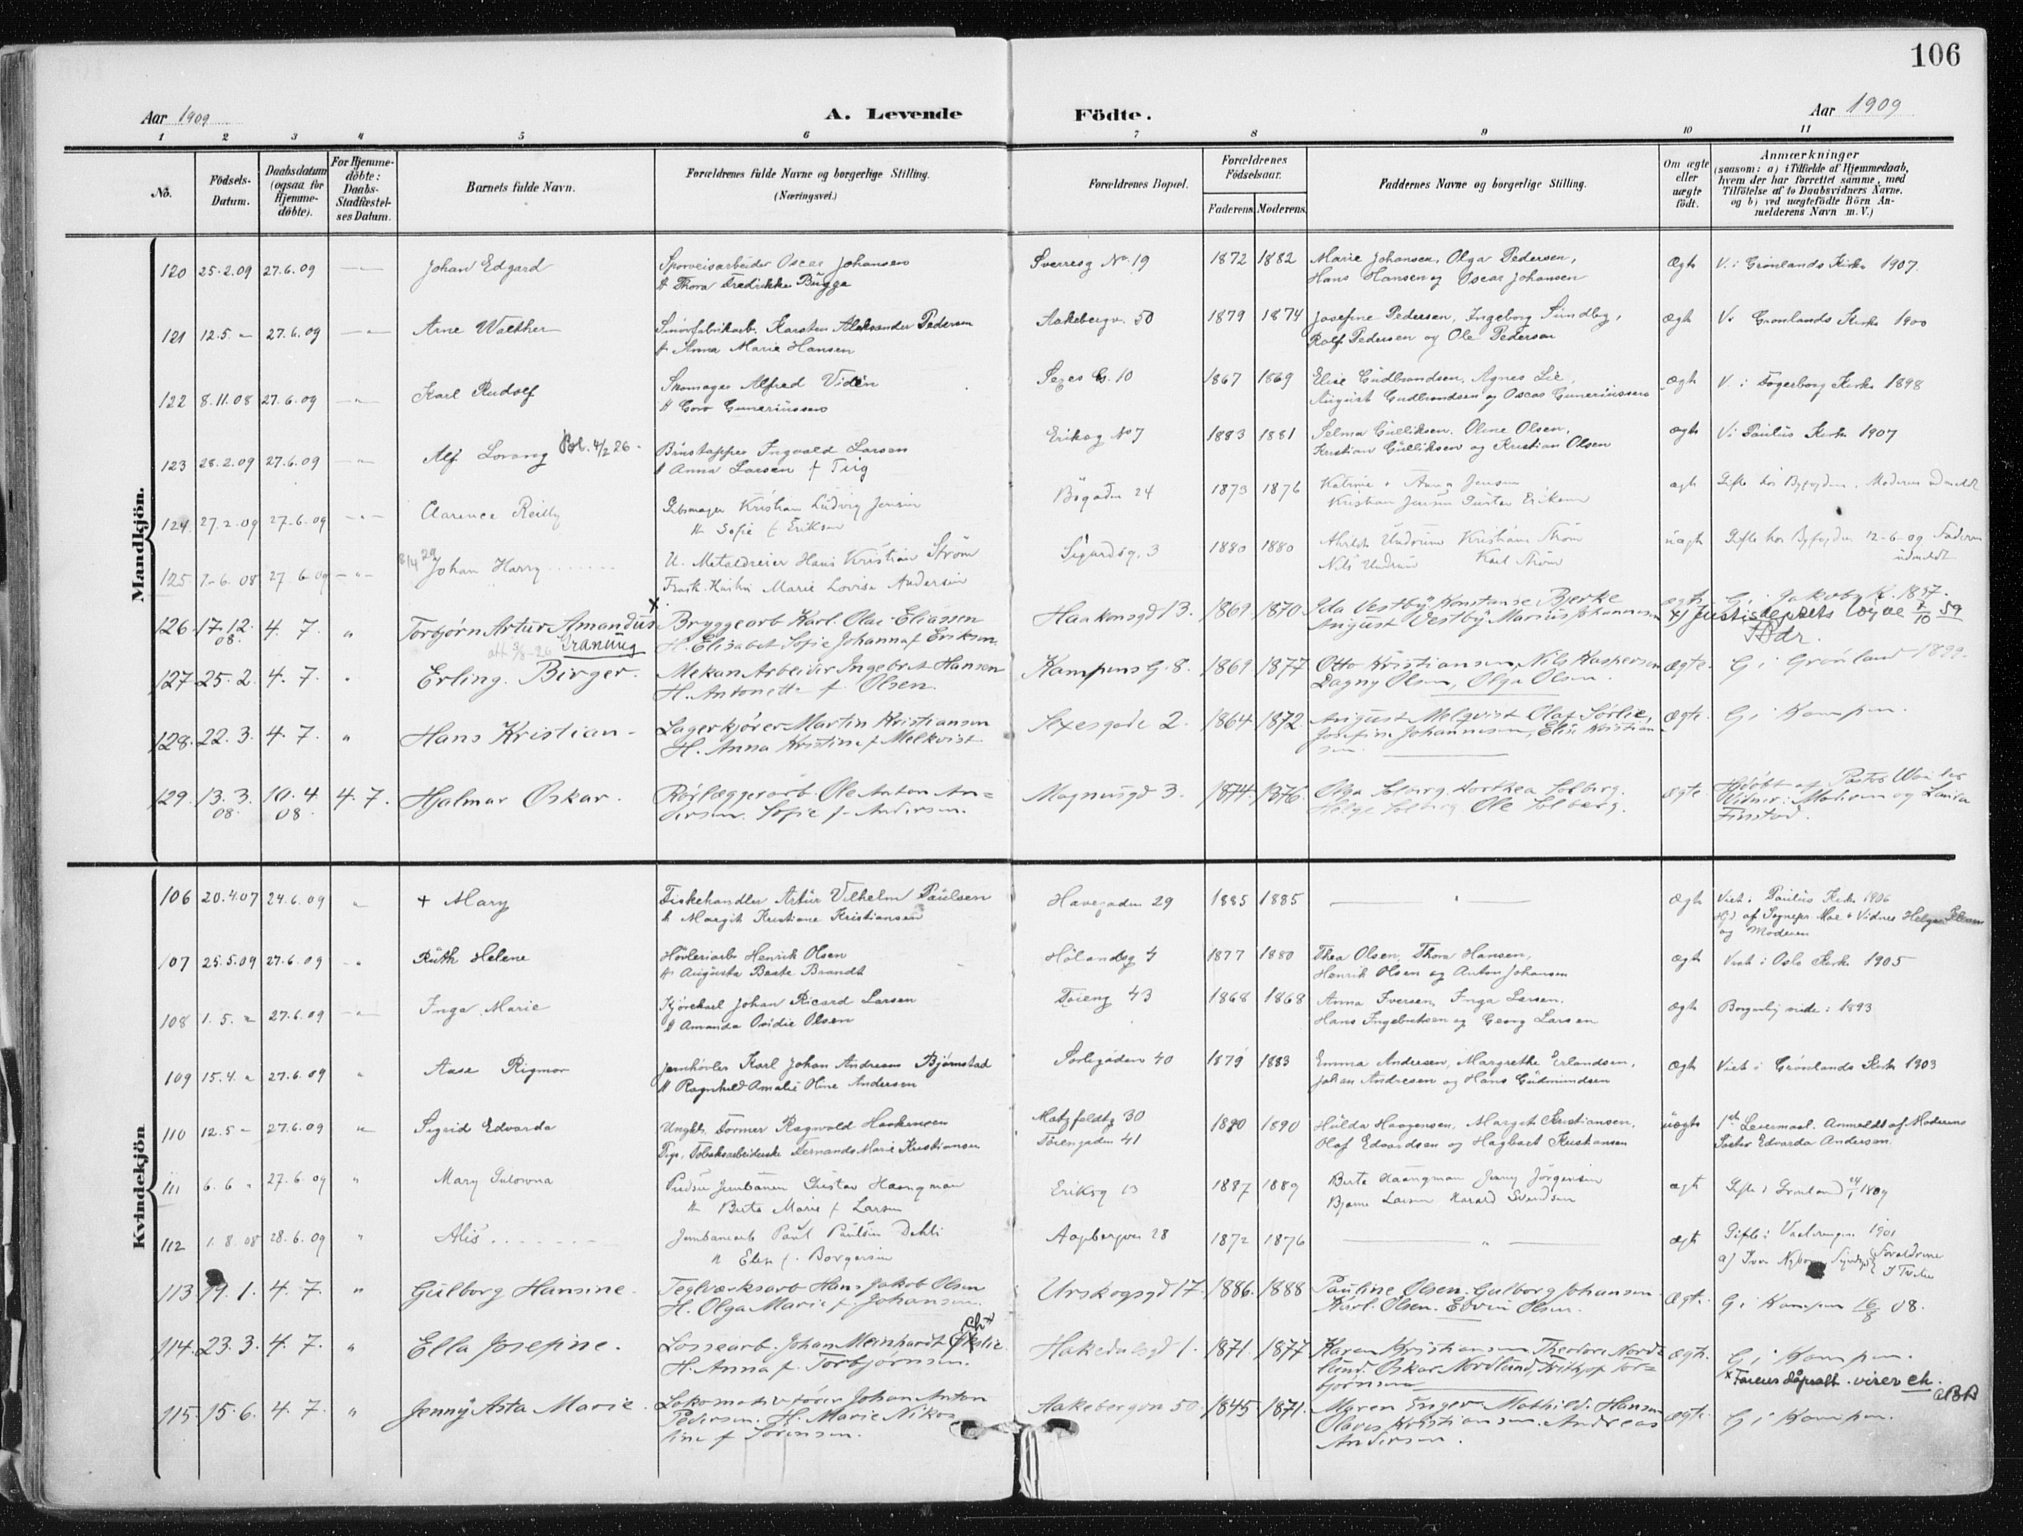 106
Aar 1909
A. Levende
Födte.
Aar 1909
1 2 3 4 5 6 7 8 9 10 11
Nō.
Födsels-
Datum.
Daabsdatum
(ogsaa for
Hjemme-
döbte).
For Hjemme-
döbte:
Daabs-
Stadfæstel-
ses Datum.
Barnets fulde Navn.
Forældrenes fulde Navne og borgerlige Stilling.
(Næringsvei.)
Forældrenes Bopæl.
Forældrenes
Födselsaar.
Faderens. Moderens.
Faddernes Navne og borgerlige Stilling.
Om ægte
eller
uægte
födt.
Anmærkninger
(saasom: a) i Tilfælde af Hjemmedaab,
hvem der har forrettet samme, med
Tilföielse af to Daabsvidners Navne,
og b) ved uægtefödte Börn An-
melderens Navn m. V.)
Mandkjön.
120 25.2.09 27.6.09 Johan Edgard Sporveisarbeider Oscar Johansen Sverresg No 19 1872 1882 Marie Johansen, Olga Pedersen, Ægte V. i Grønlands Kirke 1907.
H Thora Fredrikke Bugga Hans Hansen og Oscar Johansen
121 12.5 " 27.6.09 Arne Walther Karsten Aleksander Pedersen Aakebergv. 50 1879 1874 Josefine Pedersen, Ingeborg Sundby, Ægte V. Grønlands Kirke 1900
H Anna Marie Hansen Rolf Pedersen og Ole Pedersen
122 8.11.08 27.6.09 Karl Rudolf Skomager Alfred Viden Sexes G. 10 1867 1869 Elise Gudbrandsen, Agnes Lie, ægte V. i Fagerborg Kirke 1898
H Guneriussen August Gudbrandsen og Oscar Guneriussen
123 28.2.09 27.6.09 Alf Lorang 4/2 26 Ingvald Larsen Eriksg No 7 1883 1881 Selma Gulliksen, Oline Olsen, Ægte V i Paulus Kirke 1907
H Anna Larsen f Kristian Gulliksen og Kristian Olsen
124 27.2.09 27.6.09 Clarence Reilly Kristian Ludvig Jensen Bögaden 24 1873 1876 Katrine + Anna Jensen ægt Gifte hos Byfogden. Moderen udmeldt
H Sofie f Eriksen Kristian Jensen Gustav Eriksen
125 7.6.08 27.6.09 8/4 29 Johan Harry U. Metaldreier Hans Kristian Strøm Sigurdsg. 3 1880 1880 Kristiane Strøm uægt Gifte hos Byfogden 12-6-09 Faderen
Marie Lovise Andersen Nils Karl Strøm udmeldt
126 17.12. 4. 7. " Torbjørn Artur Amandus x Bryggearb. Karl Olav Eliassen Haakonsgd 13. 1869 1870 Ida Vestby Konstanse Bjerke ægte G. i Jakobs K. 1897.
08. Graning H. Elisabet Sofie Johanna f Eriksen August Vestby Marius Johannesen x) Justisdeptets 7/10 59
127 25.2. 4. 7. " Erling Birger. Mekan Arbeider Ingebret Hansen Kampens G. 8. 1869 1877 Otto Kristiansen, Nils Kaspersen ægte. G i Grønland 1899.
H. Antonette f. Olsen. Dagny Olsen, Olga Olsen.
128. 22. 3. 4. 7. " Hans Kristian Lagerkjører Martin Kristiansen Sexesgade 2. 1864 1872 August Melqvist Olaf Sørlie, ægte. G. i Kampen.
H. Anna Kristine f Melkvist Josefine Johannesen, Elise Kristian
sen
129. 13. 3. 10. 4 4. 7. Hjalmar Oskar. Rørlæggerarb. Ole Anton An= Magnusgd 3. 1874 1876 Olga Solberg Dorthea Solberg. ægte. Hjdøbt af Pastor
08. 08. dersen. Sofie f. Andersen. Helge Solberg Ole Solberg. Vidner: Moderen og Laura
Finstad.
Kvindekjön
106 20.4.07 24.6.09 " + Mary Fiskehandler Artur Vilhelm Paulsen Havegaden 29 1885 1885 " Ægte Viet i Paulus Kirke 1906
h Margit Kristiane Kristiansen Hjd af Sognepr Moe + Vidner Helga
og Moderen
107 25.5.09 27.6.09 " Ruth Helene Høvleriarb Henrik Olsen Hölandsg 4 1877 1880 Thea Olsen, Thora Hansen, ægte Viet i Oslo Kirke 1905
H Augusta Beate Brandt Henrik Olsen og Anton Johansen
108 1. 5. " 27.6.09 Inga Marie Kjørekarl Johan Ricard Larsen Töieng 43 1868 1868 Anna Iversen, Inga Larsen, ægte Borgerlig viede: 1893
H Amanda Ovidie Olsen Hans Ingebretsen og Georg Larsen
109 15.4. " 27.6.09 " Aase Rigmor Jernhøvler Karl Johan Andresen Björnstad Sörligaden 40 1879 1883 Emma Andersen, Margrethe Erlandsen, ægte Viet i Grønlands Kirke 1903
H Ragnhild Amalie Oline Andersen Johan Andresen og Hans Gudmundsen
110 12.5 " 27.6.09 " Sigrid Edvarda Ungk. Former Ragnvald Haakensen 30 1880 1890 Hulda Haagensen, Margit Kristiansen, uægte 1ste Leiermaal. Anmeldt af Moderens
Pige, Tobaksarbeiderske Fernanda Marie Kristiansen Töiengaden 41 Olaf Edvardsen og Hagbart Kristiansen Søster Edvarda Andersen.
111 6. 6 " 27.6.09 " Mary Gustav Haangman Eriksg 13 1887 1889 Berta Haangman Jenny Jörgensen ægt Gifte i Grønland
H Berta Marie f Larsen Bjarne Larsen Harald Svendsen
112 1.8.08 28.6.09 " Alis Paul Paulsen Dehli 28 1872 1876 " ægt Gifte i Vaalerengen 1901
H Elen f. Borgersen Forældrene
113 19. 1. 4. 7. " Gulborg Hansine. Teglværksarb Hans Jakob Olsen Urskogsgd 17. 1886. 1888 Pauline Olsen. Gulborg Johansen. Ægte. G i Kampen 16/8 08.
H. Olga Marie f. Johansen. Karl Olsen. Edvin Olsen.
114. 23. 3. 4. 7. " Ella Josefine. Lossearb. Johan Meinhardt Hakedalsgd 1. 1871. 1877 Karen Kristiansen Theodore Nord= ægte. G i Kampen.
H. Anna f Torbjørnsen. lund, Oskar Nordlund, Fritjof Tor=
bjørnsen
115. 15. 6. 4. 7. " Jenny Asta Marie. Lokomotivfører Johan Anton Aakebergvn 50. 1845 1871. Maren Enger Mathilde Hansen ægte. G i Kampen.
Pedersen. H. Marie Niko Olaves Kristiansen. Andreas
line f Sørensen. Andersen.